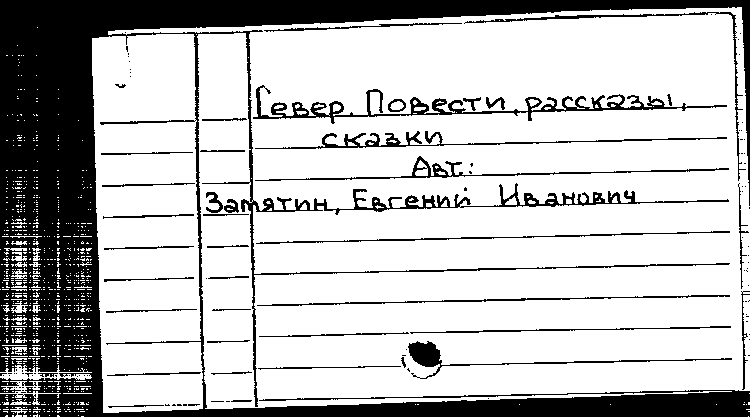 Север. Повести, рассказы,
сказки
Авт.:
Замятин, Евгений Иванович